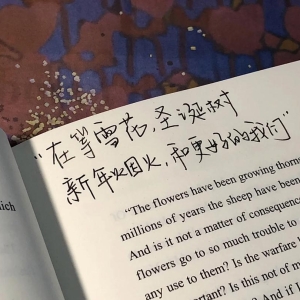 “在等雪花,圣诞树
新年烟火,和更好的我们”
ich
“The flowers have been growing thorn
millions of years the sheep have been
And is it not a matter of consequence
flowers go to so much trouble to
any use to them? Is the warfare b
important? Is this not of m
And if I